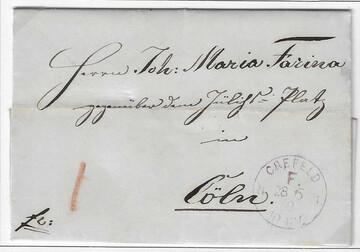 Herrn Joh: Maria Farina
gegenüber dem Jülichs-Platz
in
Cöln.
fr:
CREFELD
F
28 5